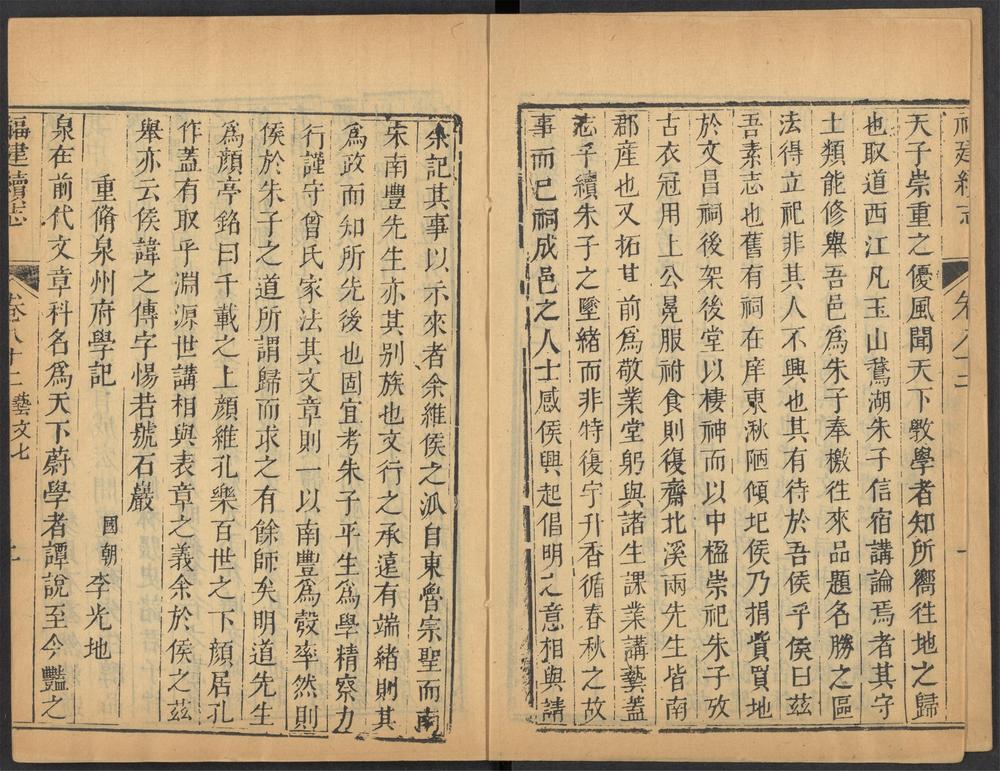 福建續志
卷八十二
一
天子崇重之優風聞天下敎學者知所嚮徃地之歸
也取道西江凡玉山鵞湖朱子信宿講論焉者其守
土類能修舉吾邑爲朱子奉檄徃來品題名勝之區
法得立祀非其人不興也其有待於吾侯乎侯曰兹
吾素志也舊有祠在庠東湫陋傾圯侯乃捐貲買地
於文昌祠後架後堂以棲神而以中楹崇祀朱子攷
古衣冠用上公冕服祔食則復齋北溪兩先生皆南
郡産也又拓其前爲敬業堂躬與諸生課業講藝蓋
志乎續朱子之墜緒而非特復宇升香循春秋之故
事而已祠成邑之人士感侯興起倡明之意相與請
余記其事以示來者余維侯之派自東魯宗聖而南
宋南豐先生亦其别族也文行之承遠有端緒則其
爲政而知所先後也固宜考朱子平生爲學精察力
行謹守曾氏家法其文章則一以南豐爲彀率然則
侯於朱子之道所謂歸而求之有餘師矣明道先生
爲顔亭銘曰千載之上顔維孔樂百世之下顔居孔
作蓋有取乎淵源世講相與表章之義余於侯之兹
舉亦云侯諱之傳字惕若號石巖
重脩泉州府學記
國朝李光地
泉在前代文章科名爲天下蔚學者譚說至今豔之
福建續志
卷八十二藝文七
二